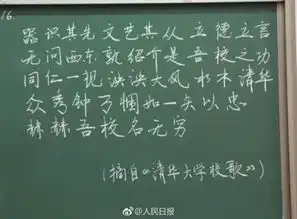 16.
器识其先文艺其从立德立言
无问西东孰绍介是吾校之功
同仁一视泱泱大风水木清华
众秀钟万悃如一矢以忠
赫赫吾校名无穷
(摘自《清华大学校歌》)
@人民日报